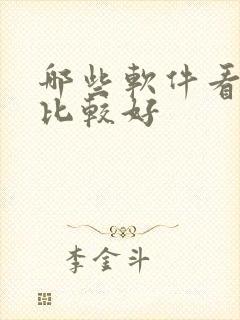 哪些軟件看
比較好
李金斗